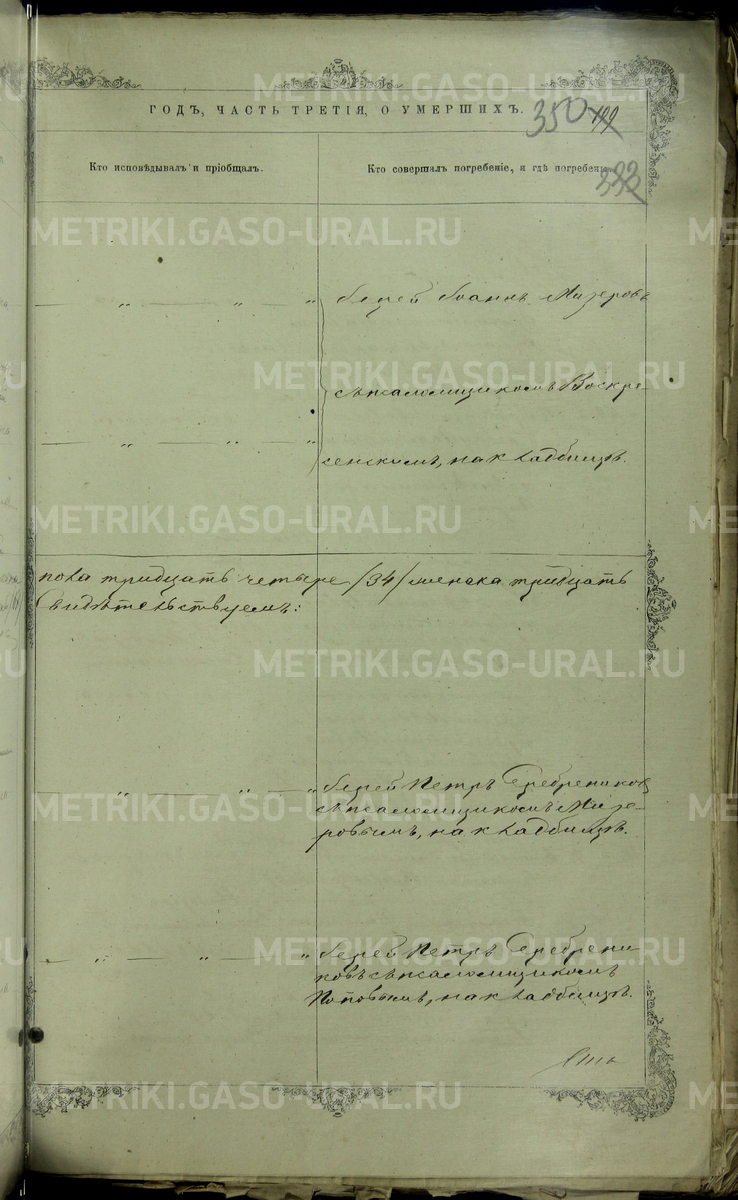 ГОДЪ, ЧАСТЬ ТРЕТІЯ, О УМЕРШИХЪ.
350 199
333
Кто исповѣдывалъ и пріобщалъ.
Кто совершалъ погребеніе, и гдѣ погребены.
METRIKI.GASO-URAL.RU
— „ — „ — „
Іерей Іоаннъ Мизеровъ
съ псаломщикомъ Воскре-
— „ — „ — „
сенскимъ, на кладбищѣ.
пола тридцать четыре /34/ женска тридцать
Свидѣтельствуемъ:
METRIKI.GASO-URAL.RU
— „ — „ — „
Іерей Петръ Серебрениковъ
съ псаломщикомъ Мизе-
ровымъ, на кладбищѣ.
— „ — „ — „
Іерей Петръ Серебрени-
ковъ съ псаломщикомъ
Поповымъ, на кладбищѣ.